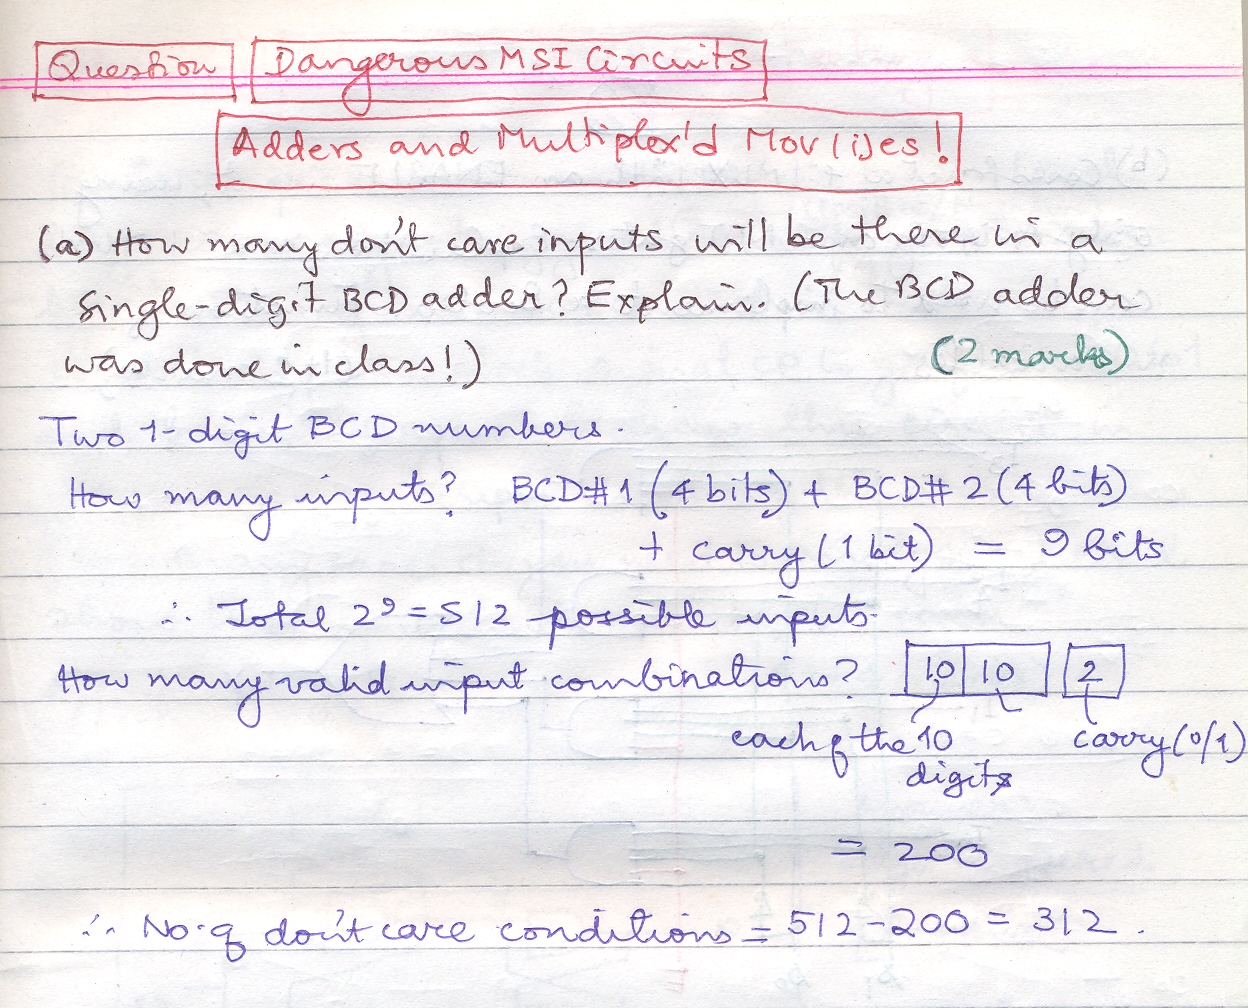 Question Dangerous MSI Circuits
Adders and Multiplex'd Mov(i)es!
(a) How many don't care inputs will be there in a
single-digit BCD adder? Explain. (The BCD adder
was done in class!) (2 marks)
Two 1-digit BCD numbers.
How many inputs? BCD#1 (4 bits) + BCD#2 (4 bits)
+ carry (1 bit) = 9 bits
∴ Total 2⁹ = 512 possible inputs.
How many valid input combinations? 10 10 2
each of the 10 carry (0/1)
digits
= 200
∴ No. of don't care conditions = 512 - 200 = 312.